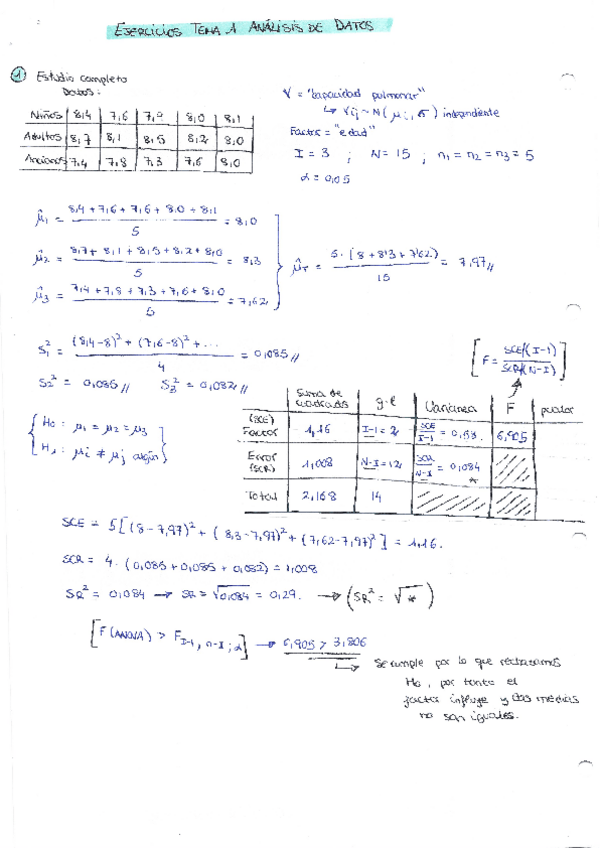 EJERCICIOS TEMA 1 ANÁLISIS DE DATOS
① Estudio completo
Datos:
Niños 8,4 7,6 7,9 8,0 8,1
Adultos 8,7 8,1 8,5 8,2 8,0
Ancianos 7,4 7,8 7,3 7,6 8,0
Y = "capacidad pulmonar"
↳ Yij ~ N(μi, σ) independiente
Factor = "edad"
I = 3 ; N = 15 ; n1 = n2 = n3 = 5
α = 0,05
μ̂1 = (8,4 + 7,6 + 7,6 + 8,0 + 8,1) / 5 = 8,0
μ̂2 = (8,7 + 8,1 + 8,5 + 8,2 + 8,0) / 5 = 8,3
μ̂3 = (7,4 + 7,8 + 7,3 + 7,6 + 8,0) / 5 = 7,62
μ̂T = 5·(8 + 8,3 + 7,62) / 15 = 7,97 //
S1² = ((8,4-8)² + (7,6-8)² + ...) / 4 = 0,085 //
S2² = 0,085 // S3² = 0,082 //
[F = SCE/(I-1) / SCR/(N-I)]
Suma de cuadrados g.l Varianza F pvalor
(SCE) Factor 1,16 I-1 = 2 SCE/I-1 = 0,58 6,905
Error (SCR) 1,008 N-I = 12 SCR/N-I = 0,084 *
Total 2,168 14
{ H0: μ1 = μ2 = μ3
H1: μi ≠ μj algún }
SCE = 5[(8-7,97)² + (8,3-7,97)² + (7,62-7,97)²] = 1,16.
SCR = 4·(0,085 + 0,085 + 0,082) = 1,008
SR² = 0,084 → SR = √0,084 = 0,29. → (SR² = √*)
[F(ANOVA) > F I-1, n-I; α] → 6,905 > 3,806
↳ Se cumple por lo que rechazamos
H0, por tanto el
factor influye y las medias
no son iguales.